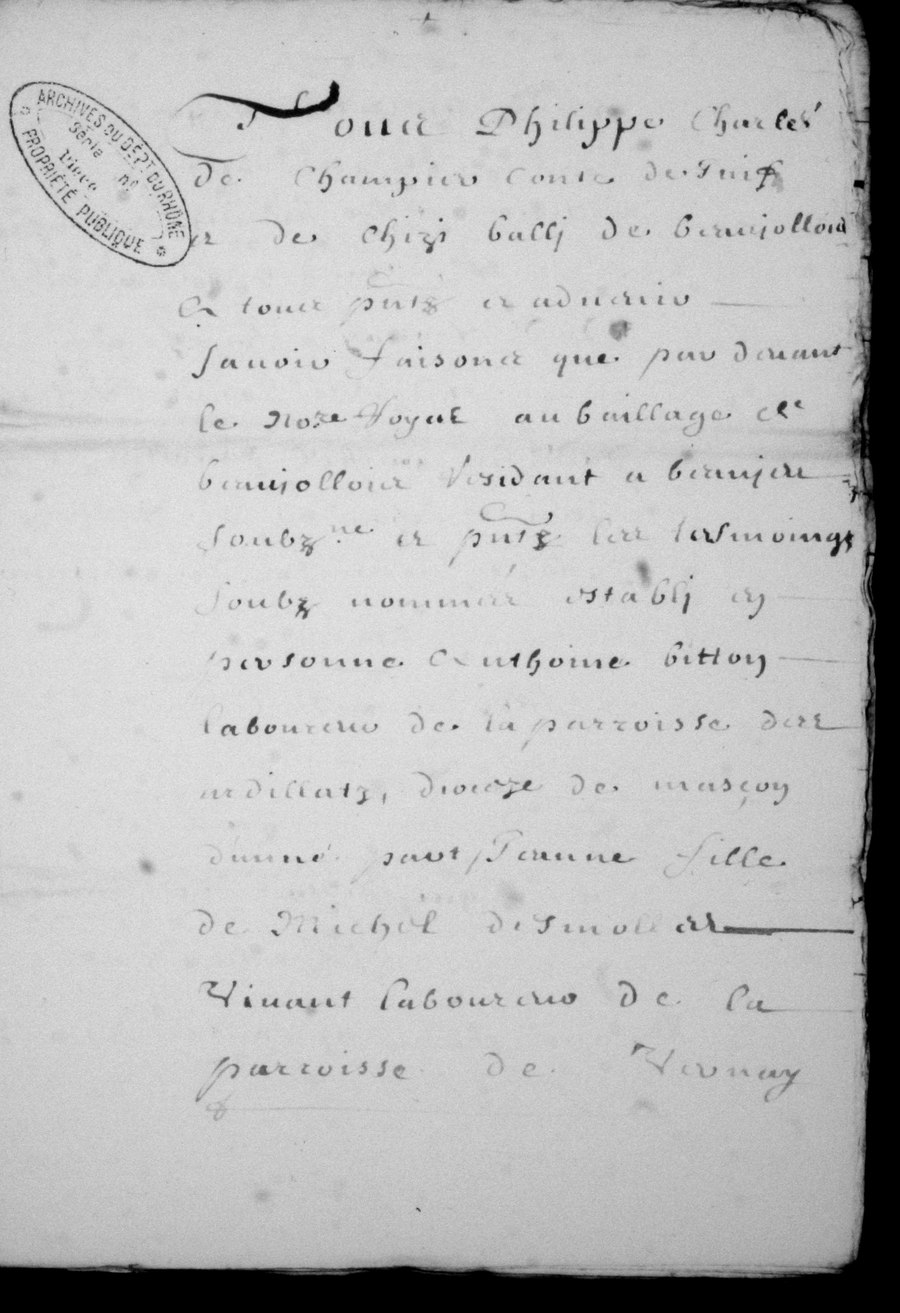 ARCHIVES DU DÉPT DU RHÔNE
Série nº
Pièce
PROPRIÉTÉ PUBLIQUE
Nous Philippe Charles
de Champier Conte de Juif
et de Chizi balli de beauiollois
A tous pntz et aduenir
sauoir faisons que par deuant
le nore Royal au baillage de
beauiollois Residant a beauieu
soubzne et pntz les tesmoings
soubz nommés establj en
personne Anthoine bitton
laboureur de la parroisse des
ardillatz, dioceze de mascon
d'unne part, Jeanne fille
de Michel desmolles
Viuant laboureur de la
parroisse de Vernay